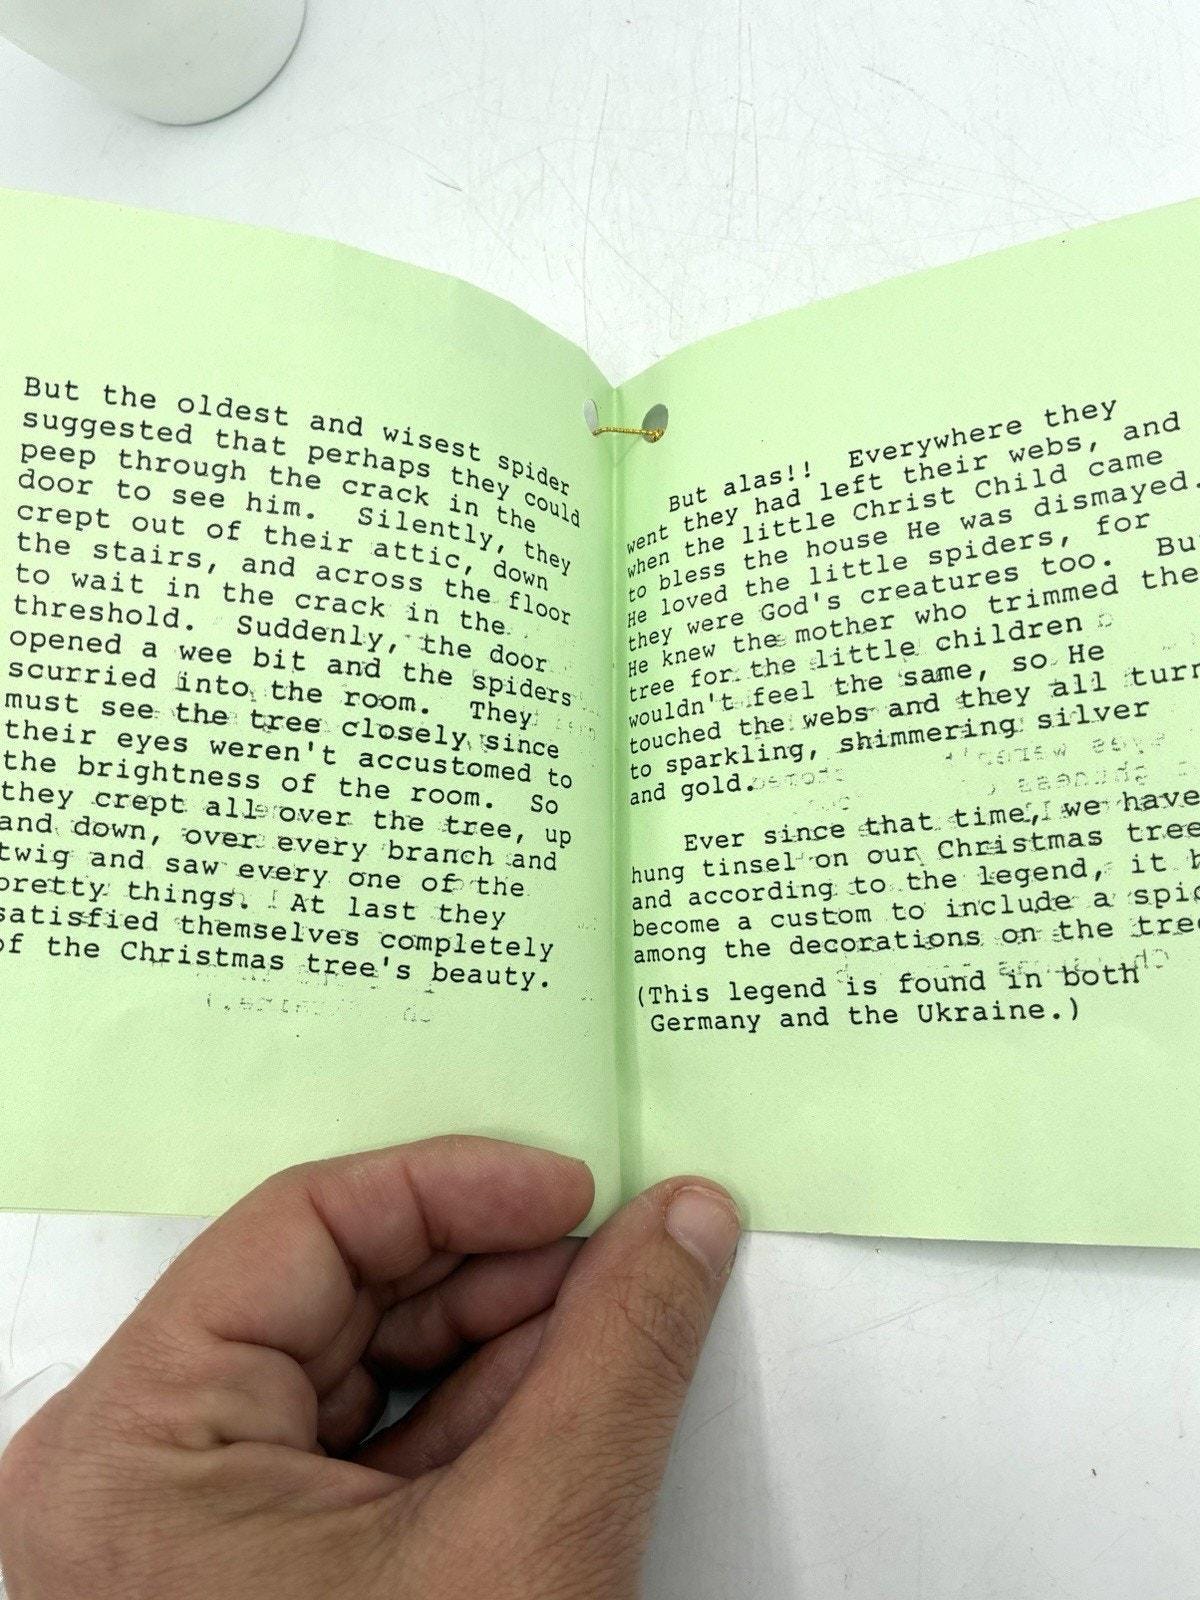 But the oldest and wisest spider
suggested that perhaps they could
peep through the crack in the
door to see him.  Silently, they
crept out of their attic, down
the stairs, and across the floor
to wait in the crack in the
threshold.  Suddenly, the door
opened a wee bit and the spiders
scurried into the room.  They
must see the tree closely since
their eyes weren't accustomed to
the brightness of the room.  So
they crept all over the tree, up
and down, over every branch and
twig and saw every one of the
pretty things.  At last they
satisfied themselves completely
of the Christmas tree's beauty.
But alas!!  Everywhere they
went they had left their webs, and
when the little Christ Child came
to bless the house He was dismayed.
He loved the little spiders, for
they were God's creatures too.  But
He knew the mother who trimmed the
tree for the little children
wouldn't feel the same, so He
touched the webs and they all turn
to sparkling, shimmering silver
and gold.
Ever since that time, we have
hung tinsel on our Christmas tree
and according to the legend, it
become a custom to include a
among the decorations on the tree
(This legend is found in both
Germany and the Ukraine.)